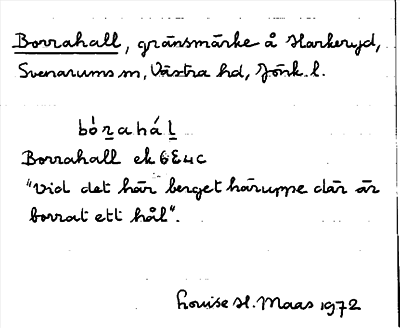 Borrahall, gränsmärke å Harkeryd,
Svenarums sn, Västra hd, Jönk. l.
bórahál
Borrahall ek 6E4c
"Vid det här berget häruppe där är
borrat ett hål".
Louise H. Maas 1972